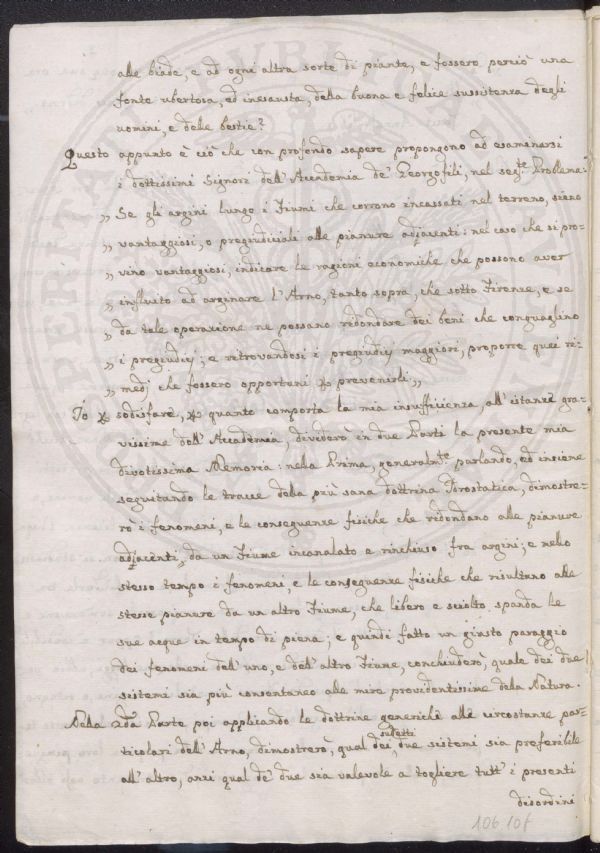 alle biade, e ad ogni altra sorte di piante, e fossero perciò una
fonte ubertosa, ed inesausta, della buona e felice sussistenza degli
uomini, e delle bestie?
Questo appunto è ciò che con profondo sapere propongono ad esaminarsi
i dottissimi Signori dell'Accademia de' Georgofili, nel seg.te Problema:
„ Se gli argini lungo i Fiumi che corrono incassati nel terreno, sieno
„ vantaggiosi, o pregiudiciali alle pianure adjacenti: nel caso che si pro-
„ vino vantaggiosi, indicare le ragioni economiche che possono aver
„ influito ad arginare l'Arno, tanto sopra, che sotto Firenze, e se
„ da tale operazione ne possano ridondare dei beni che conguaglino
„ i pregiudizj; e ritrovandosi i pregiudizj maggiori, proporre quei ri-
„ medj che fossero opportuni per prevenirli „
Io per sodisfare, per quanto comporta la mia insufficienza, all'istanze gra-
vissime dell'Accademia, dividerò in due Parti la presente mia
divotissima Memoria: nella Prima, generalm.te parlando, ed insieme
seguitando le tracce della più sana dottrina Idrostatica, dimostre-
rò i fenomeni, e le conseguenze fisiche che ridondano alle pianure
adjacenti, da un Fiume incanalato e rinchiuso fra argini; e nello
stesso tempo i fenomeni, e le conseguenze fisiche che risultano alle
stesse pianure da un altro Fiume, che libero e sciolto, spanda le
sue acque in tempo di piena; e quindi fatto un giusto paraggio
dei fenomeni dell'uno, e dell'altro Fiume, conchiuderò, quale dei due
sistemi sia più consentaneo alle mire providentissime della Natura.
Nella 2da Parte poi applicando le dottrine generiche alle circostanze par-
ticolari dell'Arno, dimostrerò, qual dei sudetti due sistemi sia preferibile
all'altro, anzi qual de' due sia valevole a togliere tutt'i presenti
disordini
106 10f